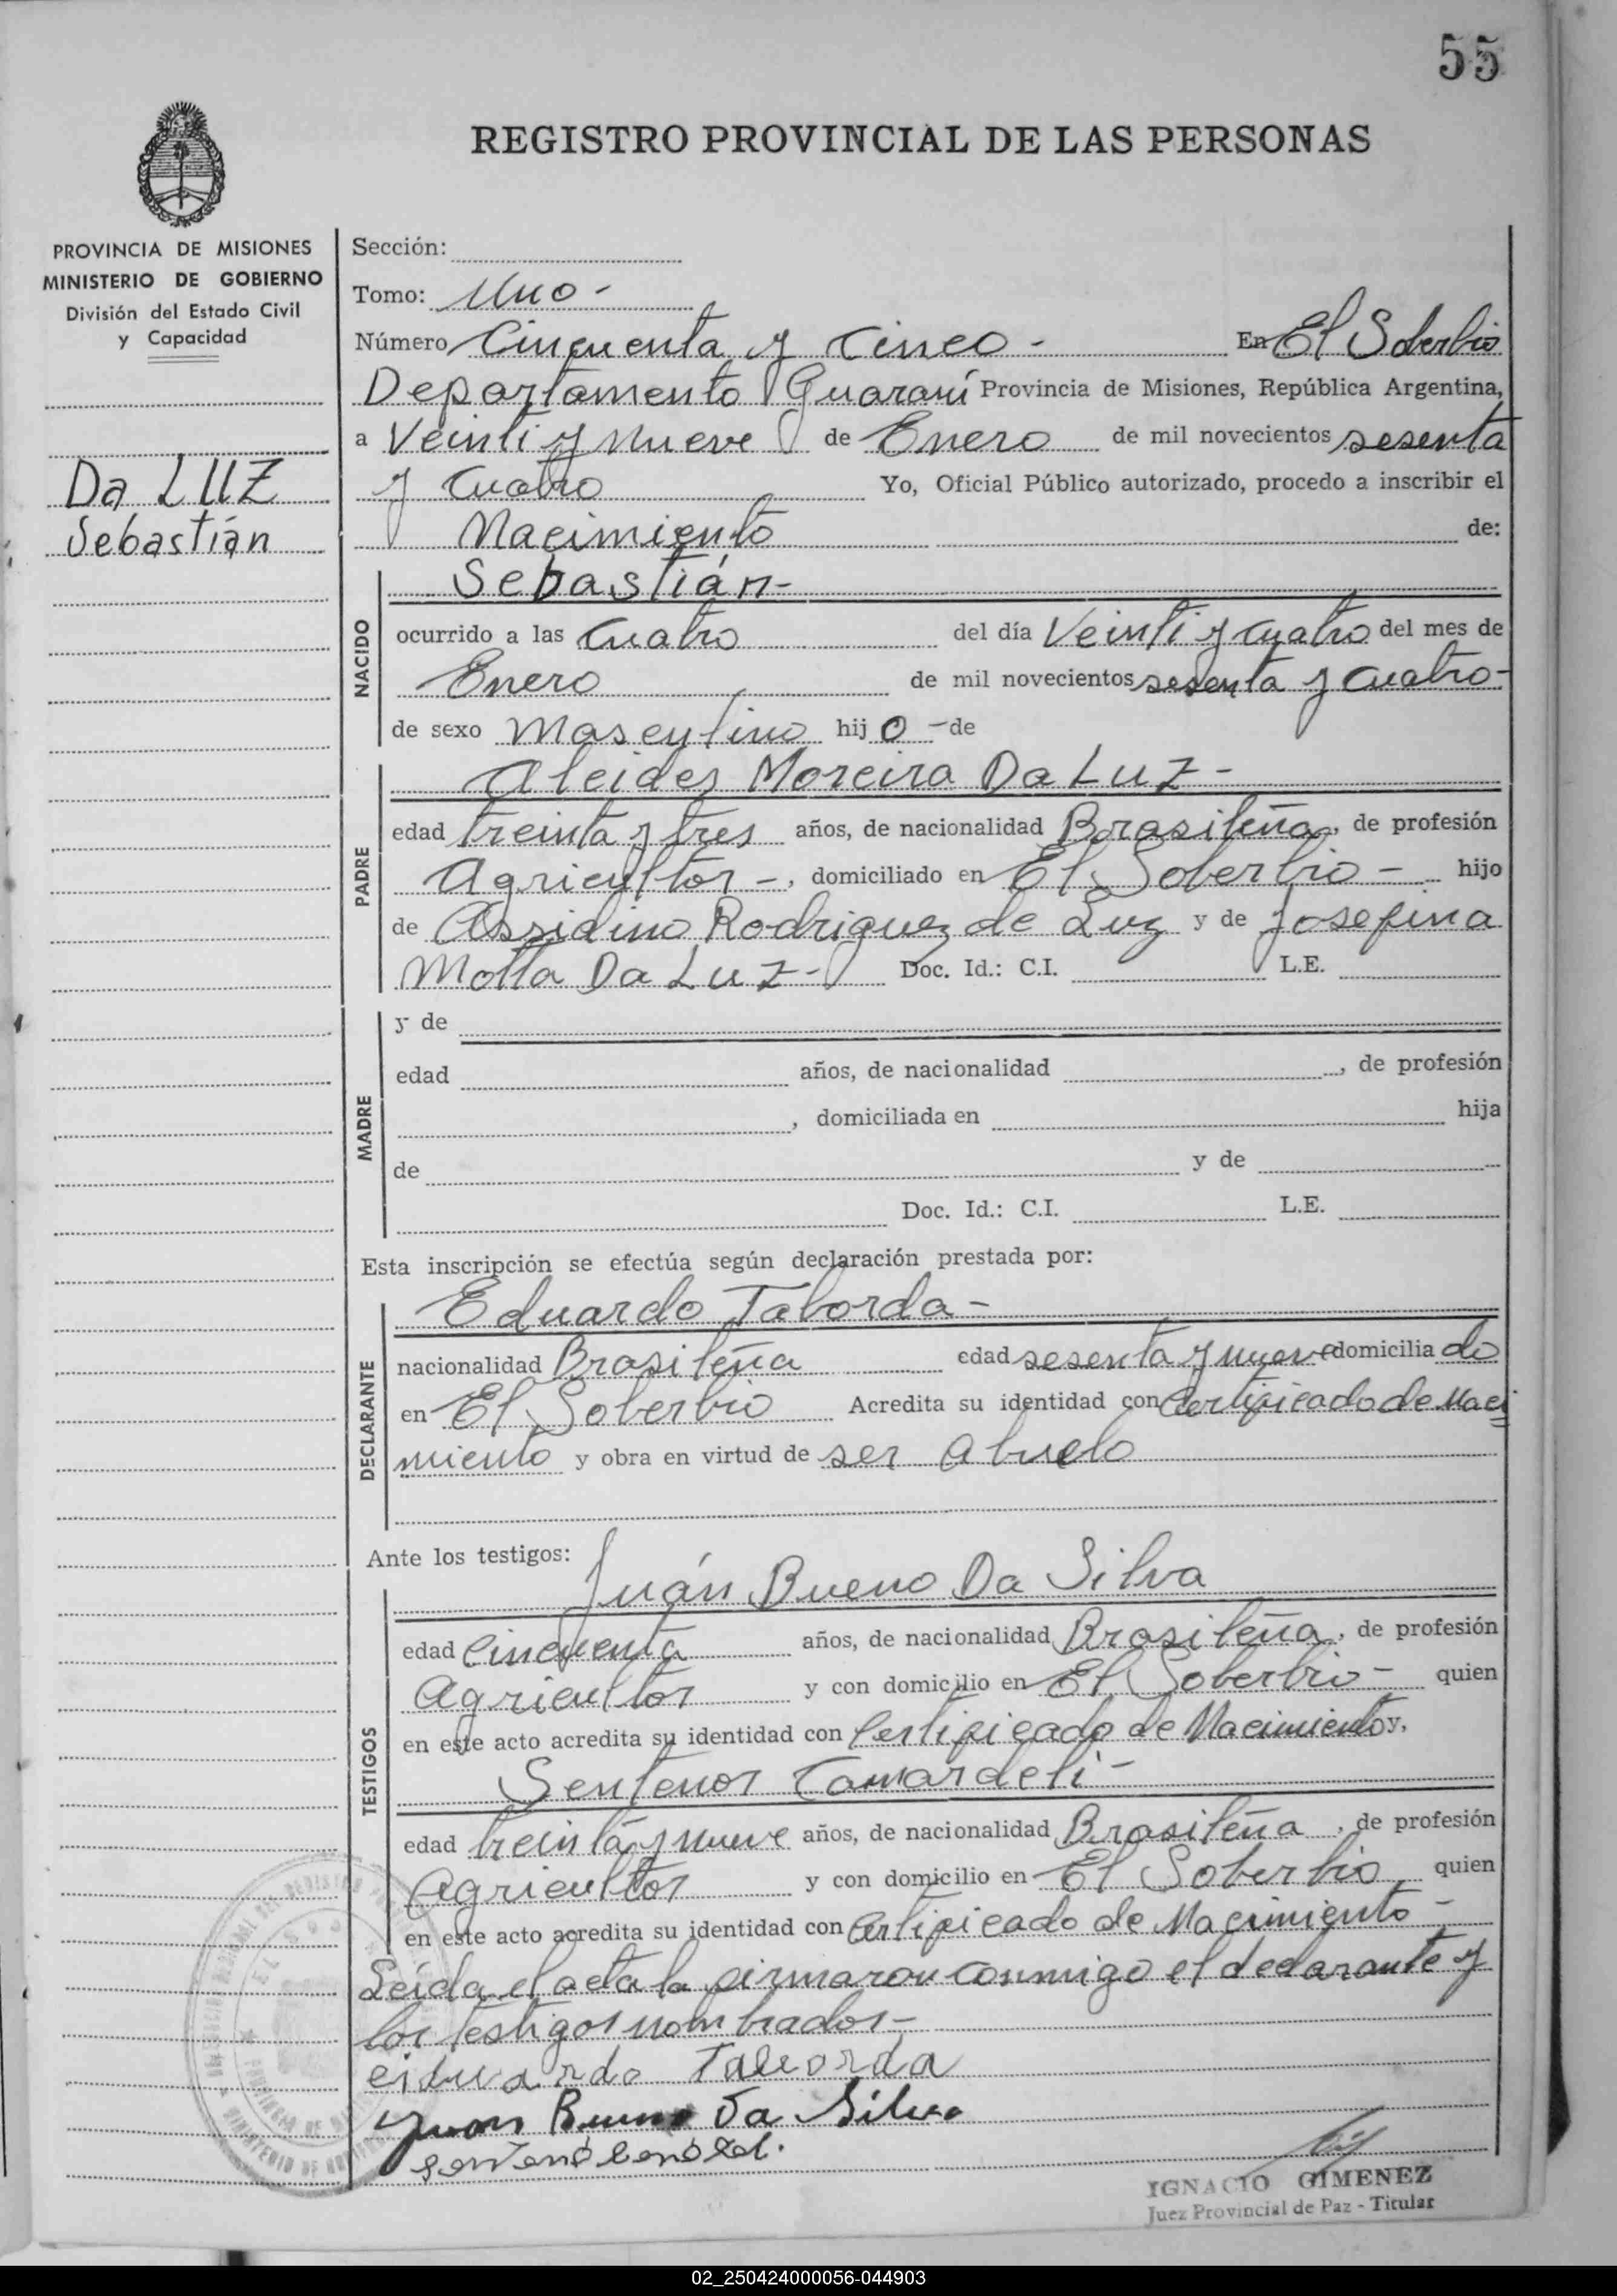 55
REGISTRO PROVINCIAL DE LAS PERSONAS
PROVINCIA DE MISIONES
MINISTERIO DE GOBIERNO
División del Estado Civil
y Capacidad
Da LUZ
Sebastián
Sección:
Tomo: Uno -
Número Cincuenta y Cinco - En El Soberbio
Departamento Guaraní Provincia de Misiones, República Argentina,
a Veinti y nueve de Enero de mil novecientos sesenta
y Cuatro Yo, Oficial Público autorizado, procedo a inscribir el
Nacimiento de:
NACIDO
Sebastián-
ocurrido a las Cuatro del día Veinti y cuatro del mes de
Enero de mil novecientos sesenta y Cuatro-
de sexo Masculino hij o - de
PADRE
Alcides Moreira Da Luz-
edad treinta y tres años, de nacionalidad Brasileña, de profesión
Agricultor -, domiciliado en El Soberbio - hijo
de Assidino Rodriguez de Luz y de Josefina
Motta Da Luz- Doc. Id.: C.I. L.E.
MADRE
y de
edad años, de nacionalidad , de profesión
, domiciliada en hija
de y de
Doc. Id.: C.I. L.E.
Esta inscripción se efectúa según declaración prestada por:
DECLARANTE
Eduardo Taborda-
nacionalidad Brasileña edad sesenta y nueve domicilia do
en El Soberbio Acredita su identidad con Certificado de Naci
miento y obra en virtud de ser abuelo
Ante los testigos:
TESTIGOS
Juán Bueno Da Silva
edad Cincuenta años, de nacionalidad Brasileña, de profesión
Agricultor y con domicilio en El Soberbio - quien
en este acto acredita su identidad con Certificado de Nacimiento y,
Sentenor Camardeli -
edad treinta y nueve años, de nacionalidad Brasileña, de profesión
Agricultor y con domicilio en El Soberbio, quien
en este acto acredita su identidad con Certificado de Nacimiento -
Leída el acta la firmaron conmigo el declarante y
los testigos nombrados-
eiduardo Taborda
Juan Bueno Da Silva
IGNACIO GIMENEZ
Juez Provincial de Paz - Titular
02_250424000056-044903